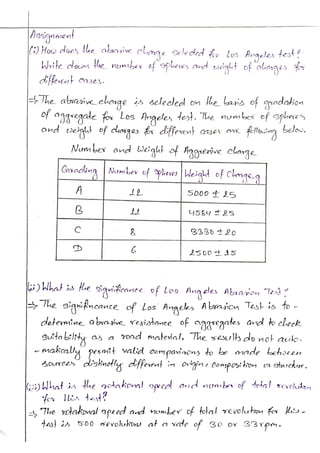 Assignment
(i) How does the abrasive charge selected for Los Angeles test?
Write down the number of spheres and weight of charges for
different cases.
⇒ The abrasive charge is selected on the basis of gradation
of aggregate for Los Angeles test. The number of spheres
and weight of charges for different cases are following below.
Number and Weight of Aggresive charge
Grading Number of spheres Weight of Charge, g
A 12 5000 ± 25
B 11 4584 ± 25
C 8 3330 ± 20
D 6 2500 ± 15
(ii) What is the significance of Los Angeles Abrasion Test?
⇒ The significance of Los Angeles Abrasion Test is to -
determine abrasive resistance of aggregates and to check
suitability as a road material. The results do not auto-
- matically permit valid comparisons to be made between
sources distinctly different in origin, composition or structure.
(iii) What is the rotational speed and number of total revolution
for this test?
⇒ The rotational speed and number of total revolution for this -
test is 500 revolutions at a rate of 30 or 33 rpm.